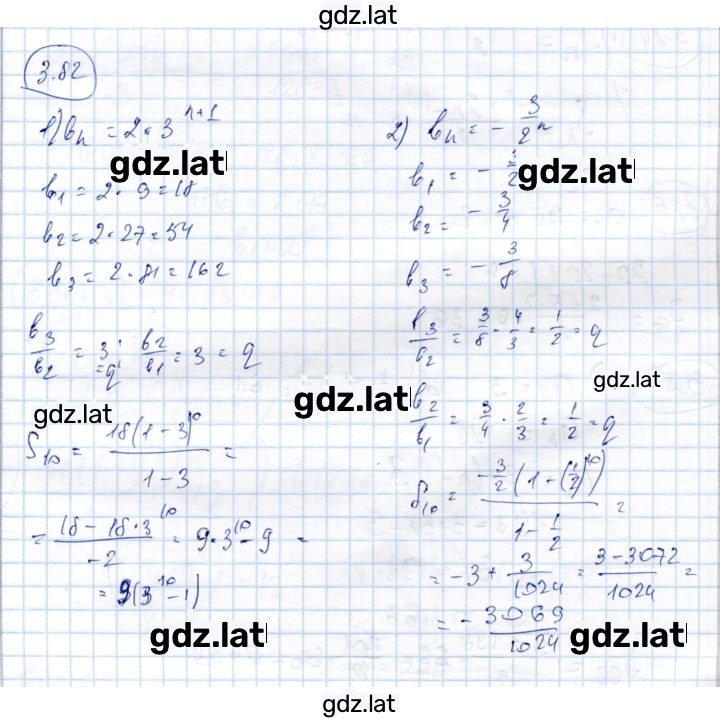 gdz.lat
3.82
1) bₙ = 2·3ⁿ⁺¹
gdz.lat
b₁ = 2·9 = 18
b₂ = 2·27 = 54
b₃ = 2·81 = 162
b₃/b₂ = 3 = q; b₂/b₁ = 3 = q
gdz.lat
S₁₀ = 18(1-3¹⁰)/(1-3) =
= (18-18·3¹⁰)/(-2) = 9·3¹⁰-9 =
= 9(3¹⁰-1)
gdz.lat
2) bₙ = -3/2ⁿ
b₁ = -3/2
gdz.lat
b₂ = -3/4
b₃ = -3/8
b₃/b₂ = 3/8 · 4/3 = 1/2 = q
gdz.lat
gdz.lat
b₂/b₁ = 3/4 · 2/3 = 1/2 = q
S₁₀ = -3/2(1-(1/2)¹⁰)/(1-1/2) =
= -3+3/1024 = (3-3072)/1024 =
= -3069/1024
gdz.lat
gdz.lat